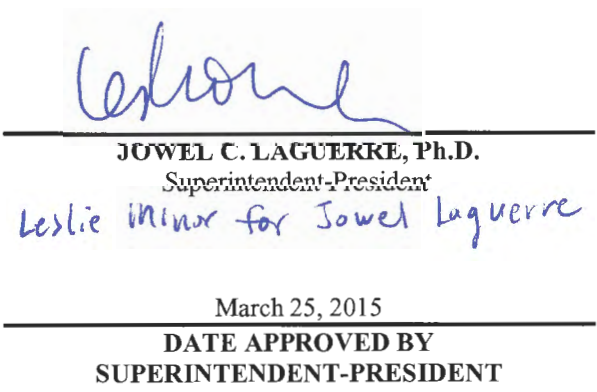 JOWEL C. LAGUERRE, Ph.D.
Superintendent-President
Leslie Minor for Jowel Laguerre
March 25, 2015
DATE APPROVED BY
SUPERINTENDENT-PRESIDENT